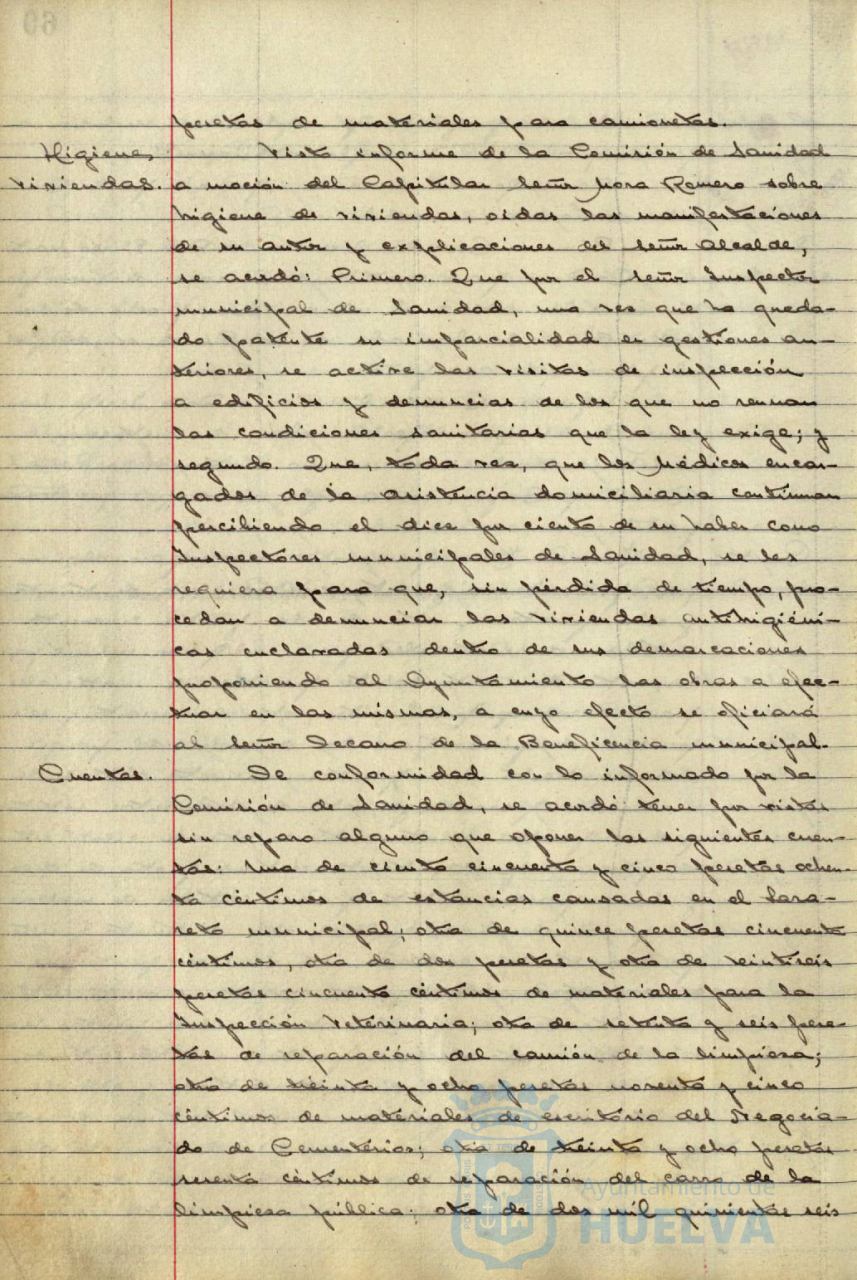 pesetas de materiales para camionetas.
Higiene
viviendas.
Visto informe de la Comisión de Sanidad
a moción del Capitular Señor Mora Romero sobre
higiene de viviendas, oidas las manifestaciones
de su autor y explicaciones del señor Alcalde,
se acordó: Primero. Que por el señor Inspector
municipal de Sanidad, una ves que ha queda-
do patente su imparcialidad en gestiones an-
teriores, se active las visitas de inspección
a edificios y denuncias de los que no reunan
las condiciones sanitarias que la ley exige; y
segundo. Que, toda vez, que los Médicos encar-
gados de la asistencia domiciliaria continuan
percibiendo el dies por ciento de su haber como
Inspectores municipales de Sanidad, se les
requiera para que, sin pérdida de tiempo, pro-
cedan a denunciar las viviendas antihigiéni-
cas enclavadas dentro de sus demarcaciones
proponiendo al Ayuntamiento las obras a efec-
tuar en las mismas, a cuyo efecto se oficiará
al señor Decano de la Beneficencia municipal.
Cuentas.
De conformidad con lo informado por la
Comisión de Sanidad, se acordó tener por vistas
sin reparo alguno que oponer las siguientes cuen-
tas: Una de ciento cincuenta y cinco pesetas ochen-
ta céntimos de estancias causadas en el Laza-
reto municipal; otra de quince pesetas cincuenta
céntimos, otra de dos pesetas y otra de veintiseis
pesetas cincuenta céntimos de materiales para la
Inspección Veterinaria; otra de setenta y seis pese-
tas de reparación del camión de la limpiesa;
otra de treinta y ocho pesetas noventa y cinco
céntimos de materiales de escritorio del Negocia-
do de Cementerios; otra de treinta y ocho pesetas
sesenta céntimos de reparación del carro de la
limpiesa pública; otra de dos mil quinientas seis
Ayuntamiento de
HUELVA